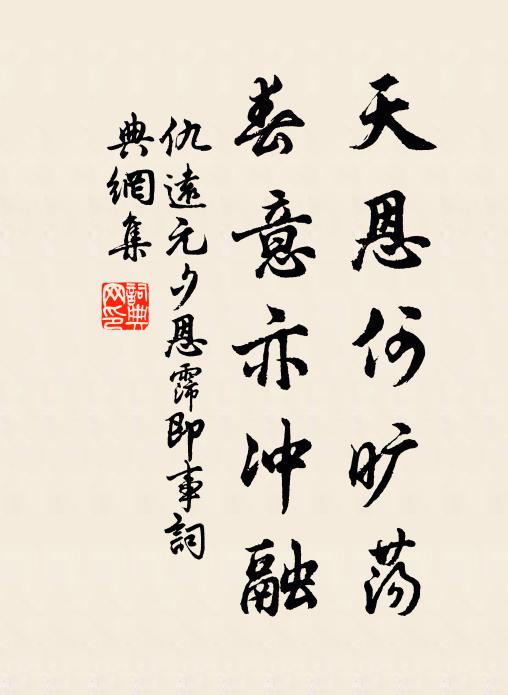 天恩何旷荡
春意亦冲融
仇遠元夕恩霈即事詞
典網集
詞典
网印